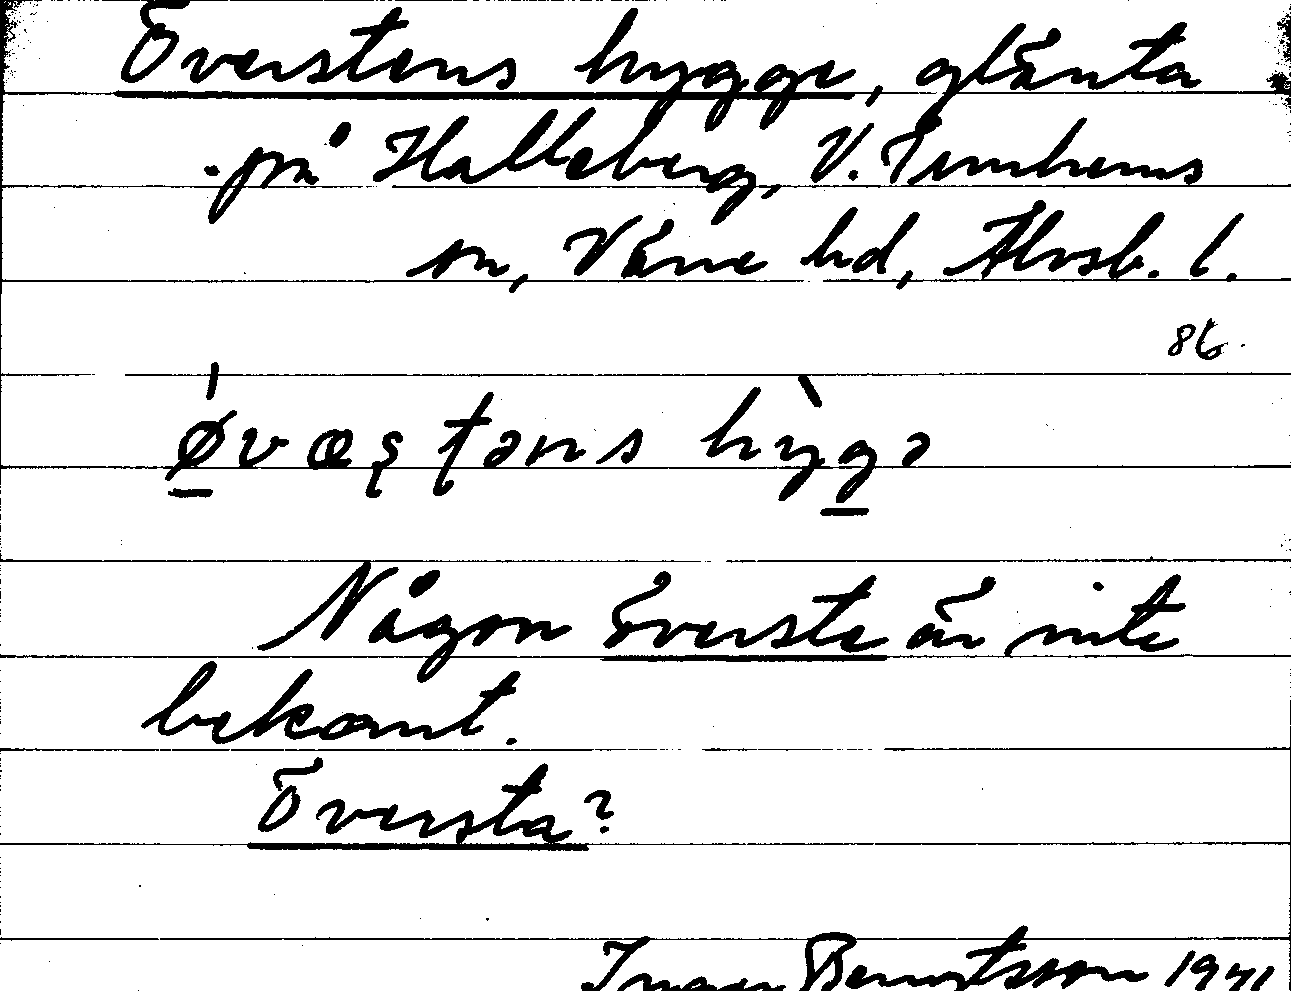 Överstens hygge, glänta
på Halleberg, V. Tunhems
sn, Väne hd, Älvsb. l.
86.
øvæʂʈəns hỳgə
Någon överste är inte
bekant.
Översta?
Bengtsson 1941